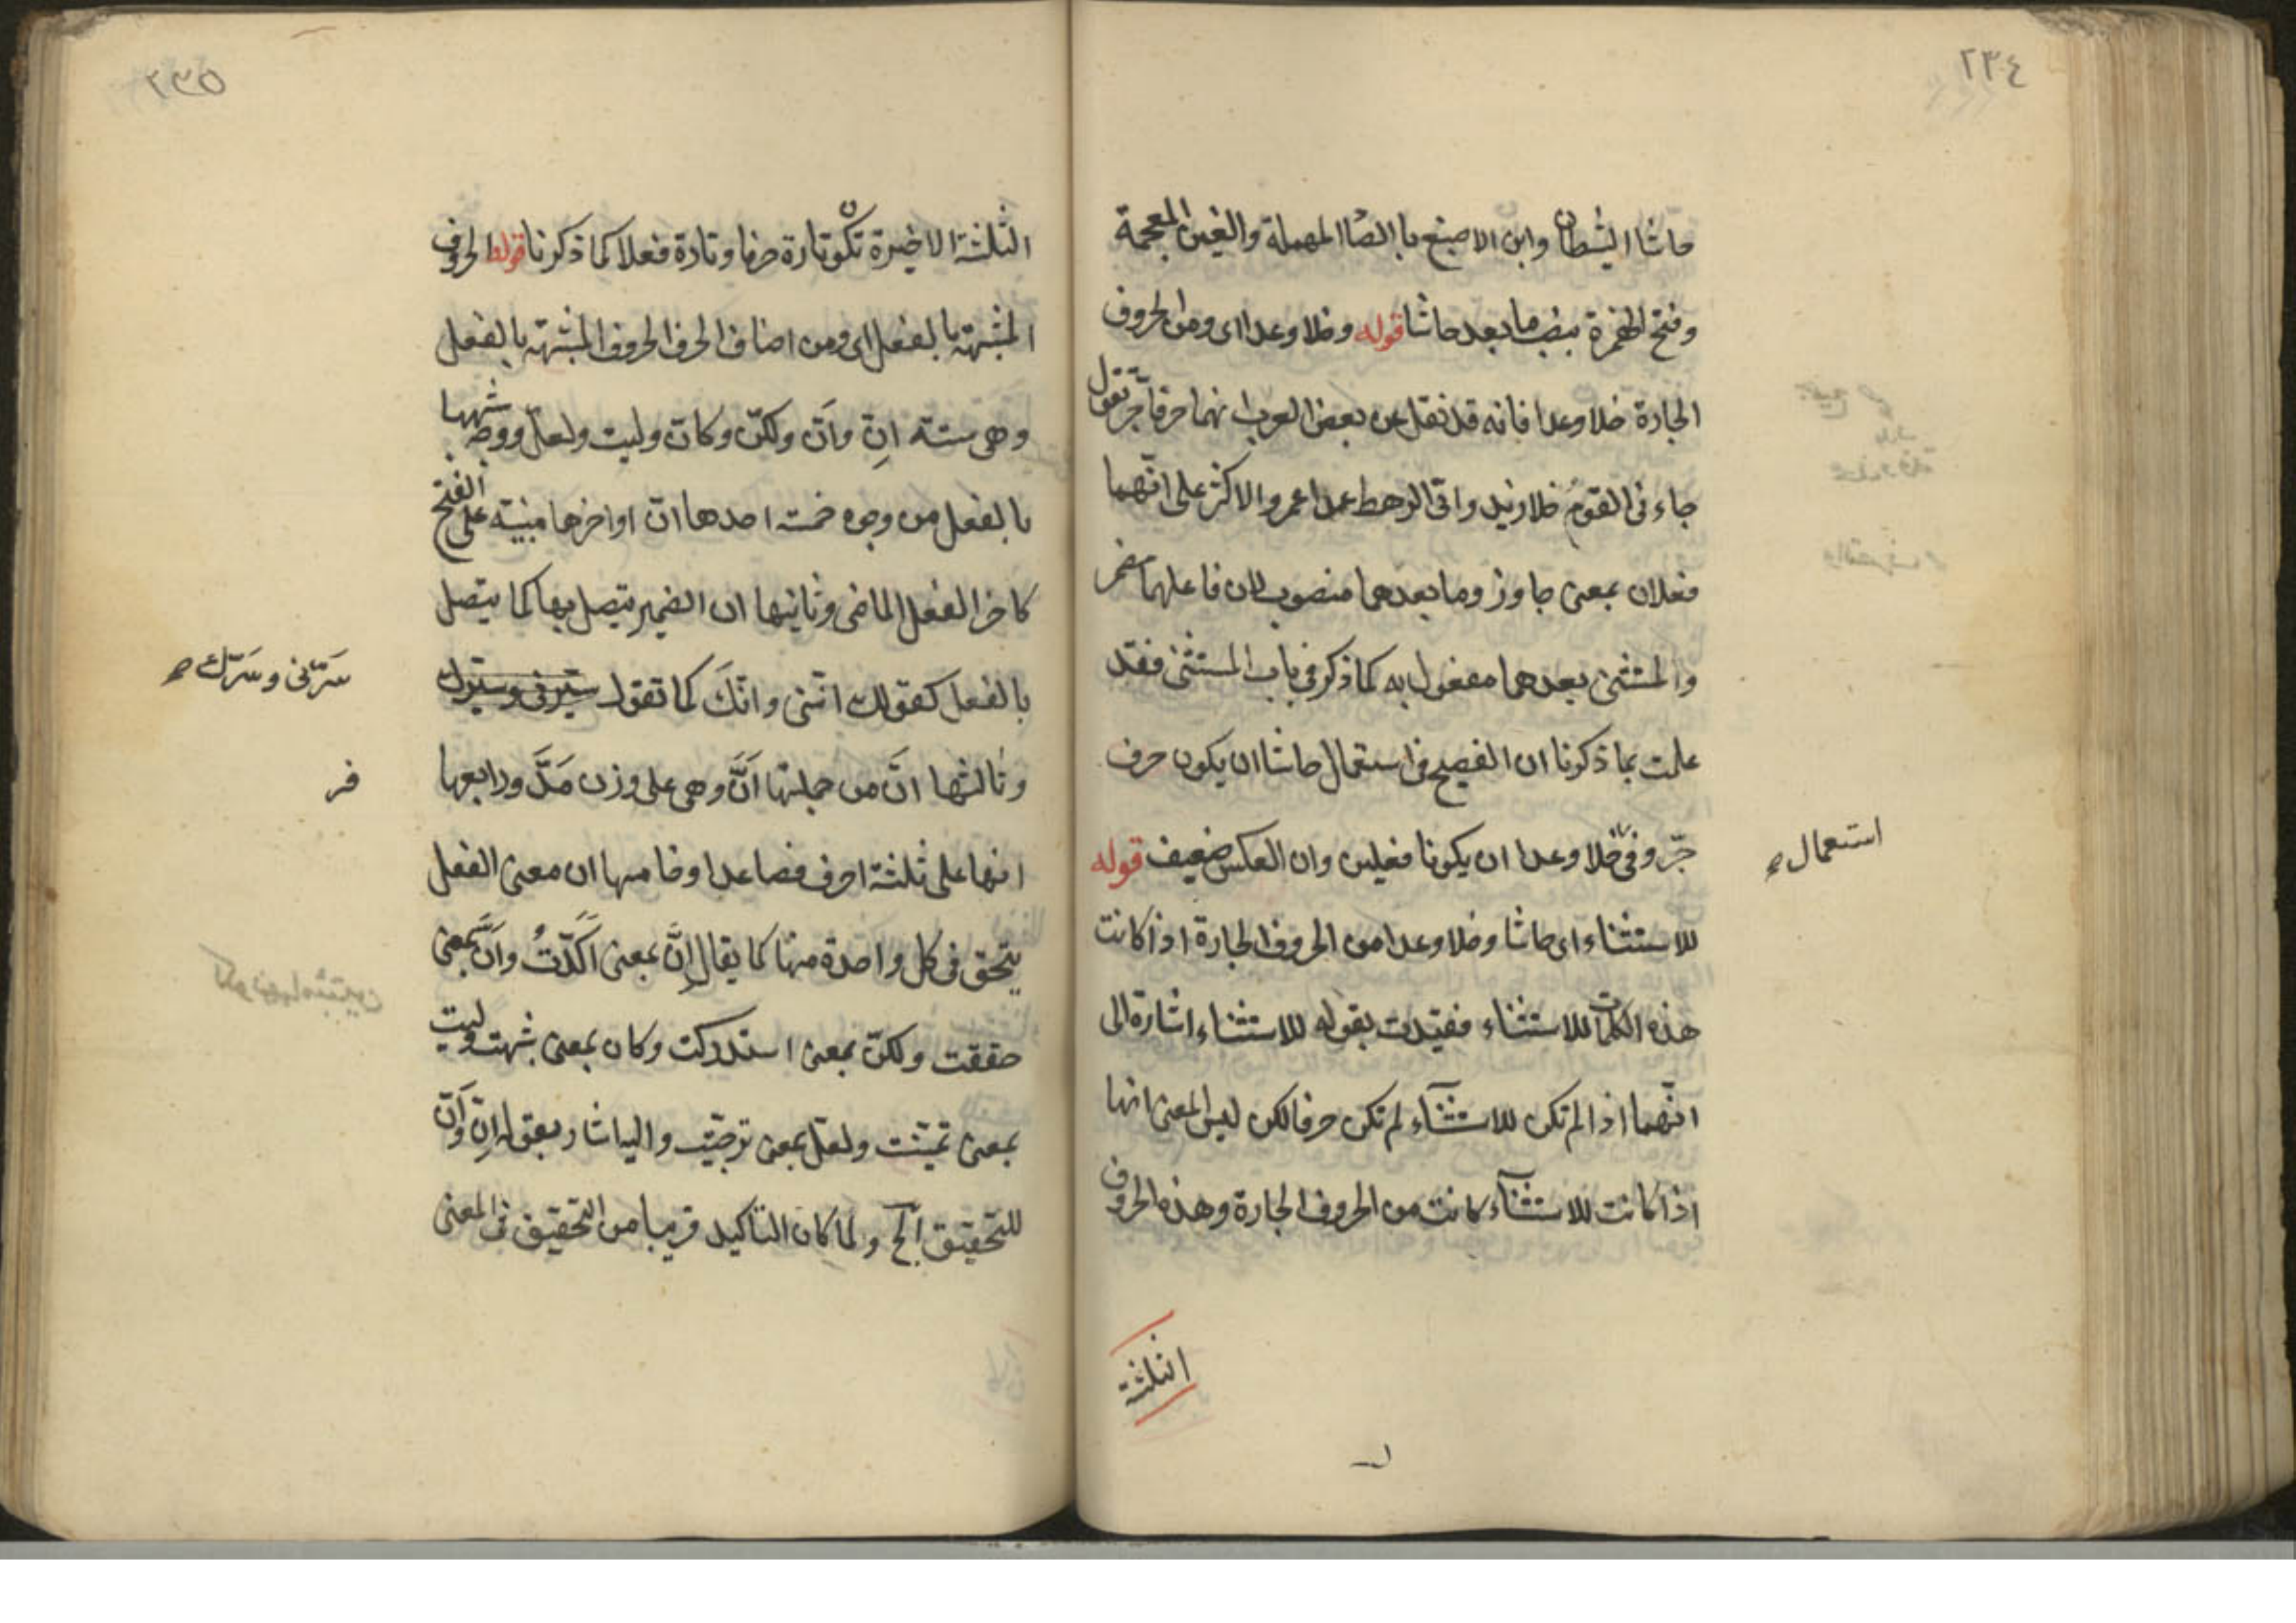 ٢٣٤
حاشا الشيطان وابن الاصبغ بالصاد المهملة والغين المعجمة
وفتح الهمزة بنصب ما بعد حاشا قوله وخلا وعدا اى ومن الحروف
الجارة خلا وعدا فانه قد نقل عن بعض العرب انهما حرفا جرّ تقول
جاءنى القوم خلا زيد واتى الرهط عدا عمرو والاكثر على انّهما
فعلان بمعنى جاوز وما بعدهما منصوب لان فاعلهما مضمر
والمستثنى بعدهما مفعول به كما ذكر فى باب المستثنى فقد
علمت بما ذكرنا ان الفصيح فى استعمال حاشا ان يكون حرف
جرّ وفى خلا وعدا ان يكونا فعلين وان العكس ضعيف قوله
استعمال
للاستثناء اى حاشا وخلا وعدا من الحروف الجارة اذا كانت
هذه الكلمات للاستثناء فقيّدت بقوله للاستثناء اشارة الى
انّهما اذا لم تكن للاستثناء لم تكن حرفا لكن ليس المعنى انها
اذا كانت للاستثناء كانت من الحروف الجارة وهذه الحروف
الثلثة
٢٣٥
الثلثة الاخيرة تكون تارة حرفا وتارة فعلا كما ذكرنا قوله الحروف
المشبهة بالفعل اى ومن اصناف الحرف الحروف المشبهة بالفعل
وهى ستة انّ وأنّ ولكنّ وكانّ وليت ولعلّ ووجه شبهها
بالفعل من وجوه خمسة احدها انّ اواخرها مبنية على الفتح
كاخر الفعل الماضى وثانيها ان الضمير يتصل بها كما يتصل
بالفعل كقولك انّنى وانّكَ كما تقول
سَرّنى وسَرّك
وثالثها انّ من جملتها أنَّ وهى على وزن مَدَّ ورابعها
فر
انها على ثلثة احرف فصاعدا وخامسها ان معنى الفعل
يتحقق فى كل واحدة منها كما يقال إنَّ بمعنى اَكَّدْتُ وأنَّ بمعنى
حققت ولكنّ بمعنى استدركت وكان بمعنى شبهت وليت
بمعنى تمنّيت ولعلّ بمعنى ترجّيت واليه اشار بقوله اِنّ وَاَنّ
للتحقيق الخ ولما كان التاكيد قريبا من التحقيق فى المعنى